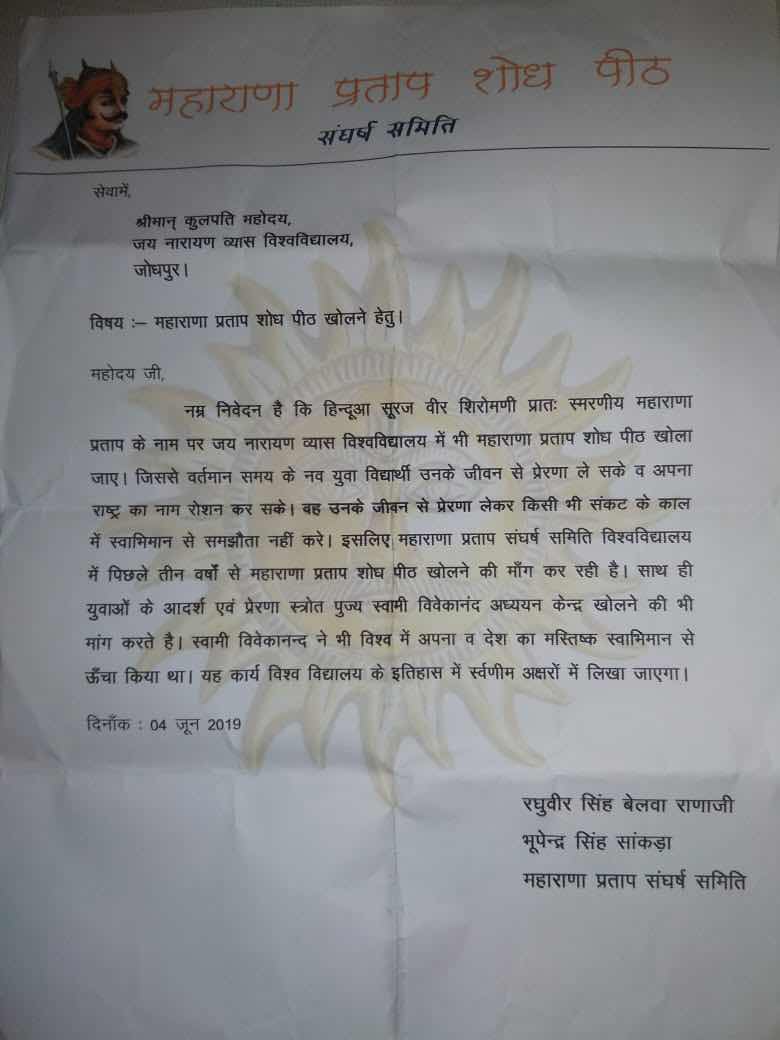 महाराणा प्रताप शोध पीठ
संघर्ष समिति
सेवामें,
श्रीमान् कुलपति महोदय,
जय नारायण व्यास विश्वविद्यालय,
जोधपुर।
विषय :– महाराणा प्रताप शोध पीठ खोलने हेतु।
महोदय जी,
नम्र निवेदन है कि हिन्दूआ सूरज वीर शिरोमणी प्रातः स्मरणीय महाराणा
प्रताप के नाम पर जय नारायण व्यास विश्वविद्यालय में भी महाराणा प्रताप शोध पीठ खोला
जाए। जिससे वर्तमान समय के नव युवा विद्यार्थी उनके जीवन से प्रेरणा ले सके व अपना
राष्ट्र का नाम रोशन कर सके। वह उनके जीवन से प्रेरणा लेकर किसी भी संकट के काल
में स्वाभिमान से समझौता नहीं करे। इसलिए महाराणा प्रताप संघर्ष समिति विश्वविद्यालय
में पिछले तीन वर्षो से महाराणा प्रताप शोध पीठ खोलने की माँग कर रही है। साथ ही
युवाओं के आदर्श एवं प्रेरणा स्त्रोत पुज्य स्वामी विवेकानंद अध्ययन केन्द्र खोलने की भी
मांग करते है। स्वामी विवेकानन्द ने भी विश्व में अपना व देश का मस्तिष्क स्वाभिमान से
ऊँचा किया था। यह कार्य विश्व विद्यालय के इतिहास में र्स्वणीम अक्षरों में लिखा जाएगा।
दिनाँक : 04 जून 2019
रघुवीर सिंह बेलवा राणाजी
भूपेन्द्र सिंह सांकड़ा
महाराणा प्रताप संघर्ष समिति